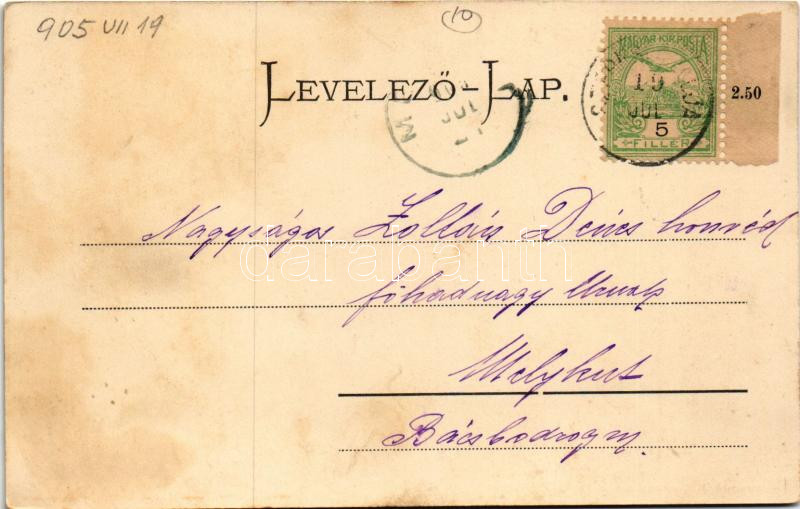 905 VII 19
10
LEVELEZŐ-LAP.
MAGYAR KIR. POSTA
19
JUL
5
FILLÉR
2.50
JUL
M
Nagyságos Zoltán Dénes honvéd
főhadnagy Urnak
Melykut
Bácsbodrogm.
darabanth